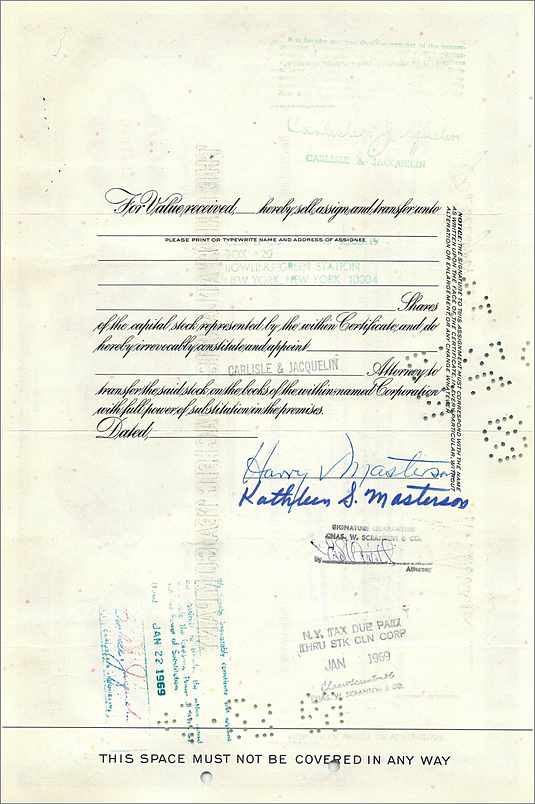 CARLISLE & JACQUELIN
For Value received, hereby sell, assign and transfer unto
PLEASE PRINT OR TYPEWRITE NAME AND ADDRESS OF ASSIGNEE
BOX - 20
BOWLING GREEN STATION
NEW YORK, NEW YORK 10004
Shares
of the capital stock represented by the within Certificate, and do
hereby irrevocably constitute and appoint
CARLISLE & JACQUELIN
Attorney to
transfer the said stock on the books of the within-named Corporation
with full power of substitution in the premises.
Dated,
NOTICE: THE SIGNATURE TO THIS ASSIGNMENT MUST CORRESPOND WITH THE NAME
AS WRITTEN UPON THE FACE OF THE CERTIFICATE, IN EVERY PARTICULAR, WITHOUT
ALTERATION OR ENLARGEMENT, OR ANY CHANGE WHATEVER.
Harry Masterson
Kathleen S. Masterson
SIGNATURE GUARANTEED
CHAS. W. SCRANTON & CO.
By
Attorney
JAN 22 1969
N.Y. TAX DUE PAID
THRU STK CLN CORP
JAN 1969
CHAS. W. SCRANTON & CO.
THIS SPACE MUST NOT BE COVERED IN ANY WAY